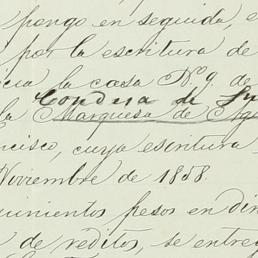 pongo en seguida, e
por la escritura de
cia la casa No. 9. de
Condesa de
la Marquesa de
cisco, cuya escritura
Noviembre de 1858.
quinientos pesos en din
de reditos, se entre